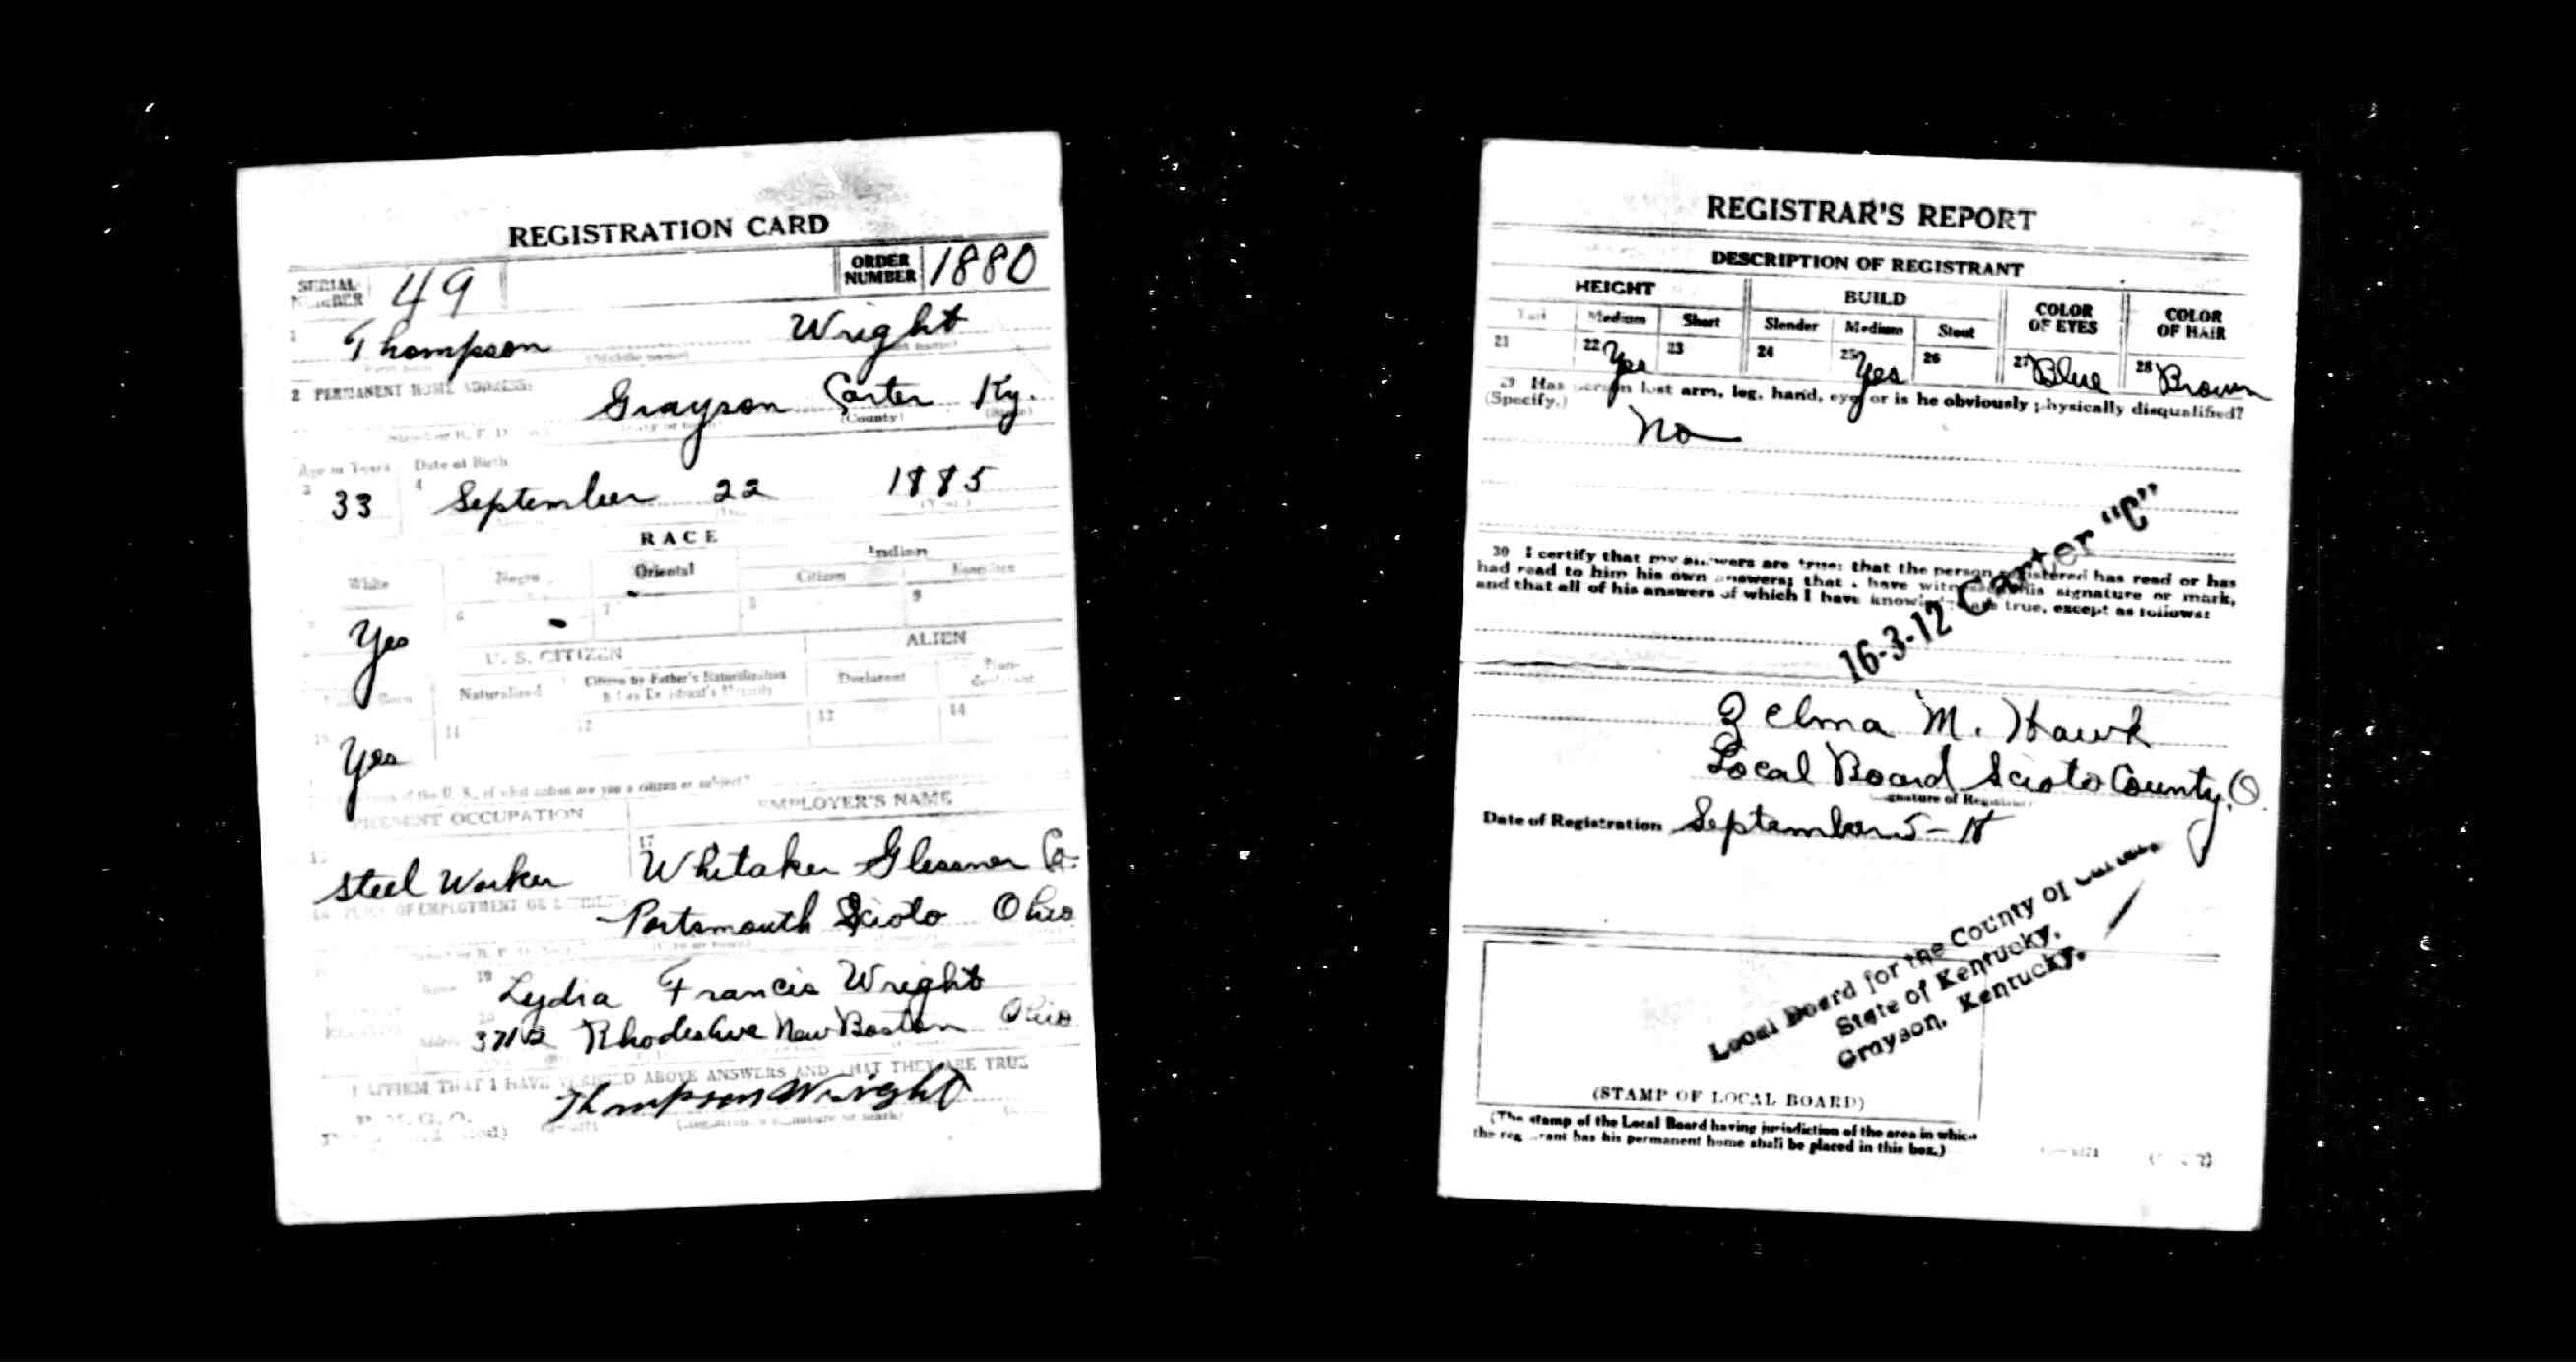 REGISTRATION CARD
SERIAL NUMBER 49 ORDER NUMBER 1880
1 Thompson Wright
(Middle name)
2 PERMANENT HOME ADDRESS:
Grayson Carter Ky.
(County) (State)
Age in Years Date of Birth
3 33 4 September 22 1885
RACE
White Negro Oriental Indian
Citizen Noncitizen
6 7 8 9
Yes
U. S. CITIZEN ALIEN
Born Naturalized Citizen by Father's Naturalization Declarant Non-declarant
10 11 12 13 14
Yes
of the U. S., of what nation are you a citizen or subject?
PRESENT OCCUPATION EMPLOYER'S NAME
Steel Worker 17 Whitaker Glessner Co.
OF EMPLOYMENT OR
Portsmouth Scioto Ohio
Name 19 Lydia Francis Wright
Address 20 3712 Rhodes Ave New Boston Ohio
I AFFIRM THAT I HAVE VERIFIED ABOVE ANSWERS AND THAT THEY ARE TRUE
P. M. G. O.
Thompson Wright
REGISTRAR'S REPORT
DESCRIPTION OF REGISTRANT
HEIGHT BUILD COLOR OF EYES COLOR OF HAIR
Tall Medium Short Slender Medium Stout
21 22 Yes 23 24 25 Yes 26 27 Blue 28 Brown
29 Has person lost arm, leg, hand, eye, or is he obviously physically disqualified?
(Specify.)
No
30 I certify that my answers are true; that the person registered has read or has
had read to him his own answers; that I have witnessed his signature or mark,
and that all of his answers of which I have knowledge are true, except as follows:
16-3-12 Carter "C"
Zelma M. Hawk
Local Board Scioto County, O.
Signature of Registrar
Date of Registration September 5-18
Local Board for the County of Carter,
State of Kentucky,
Grayson, Kentucky.
(STAMP OF LOCAL BOARD)
(The stamp of the Local Board having jurisdiction of the area in which
the registrant has his permanent home shall be placed in this box.)